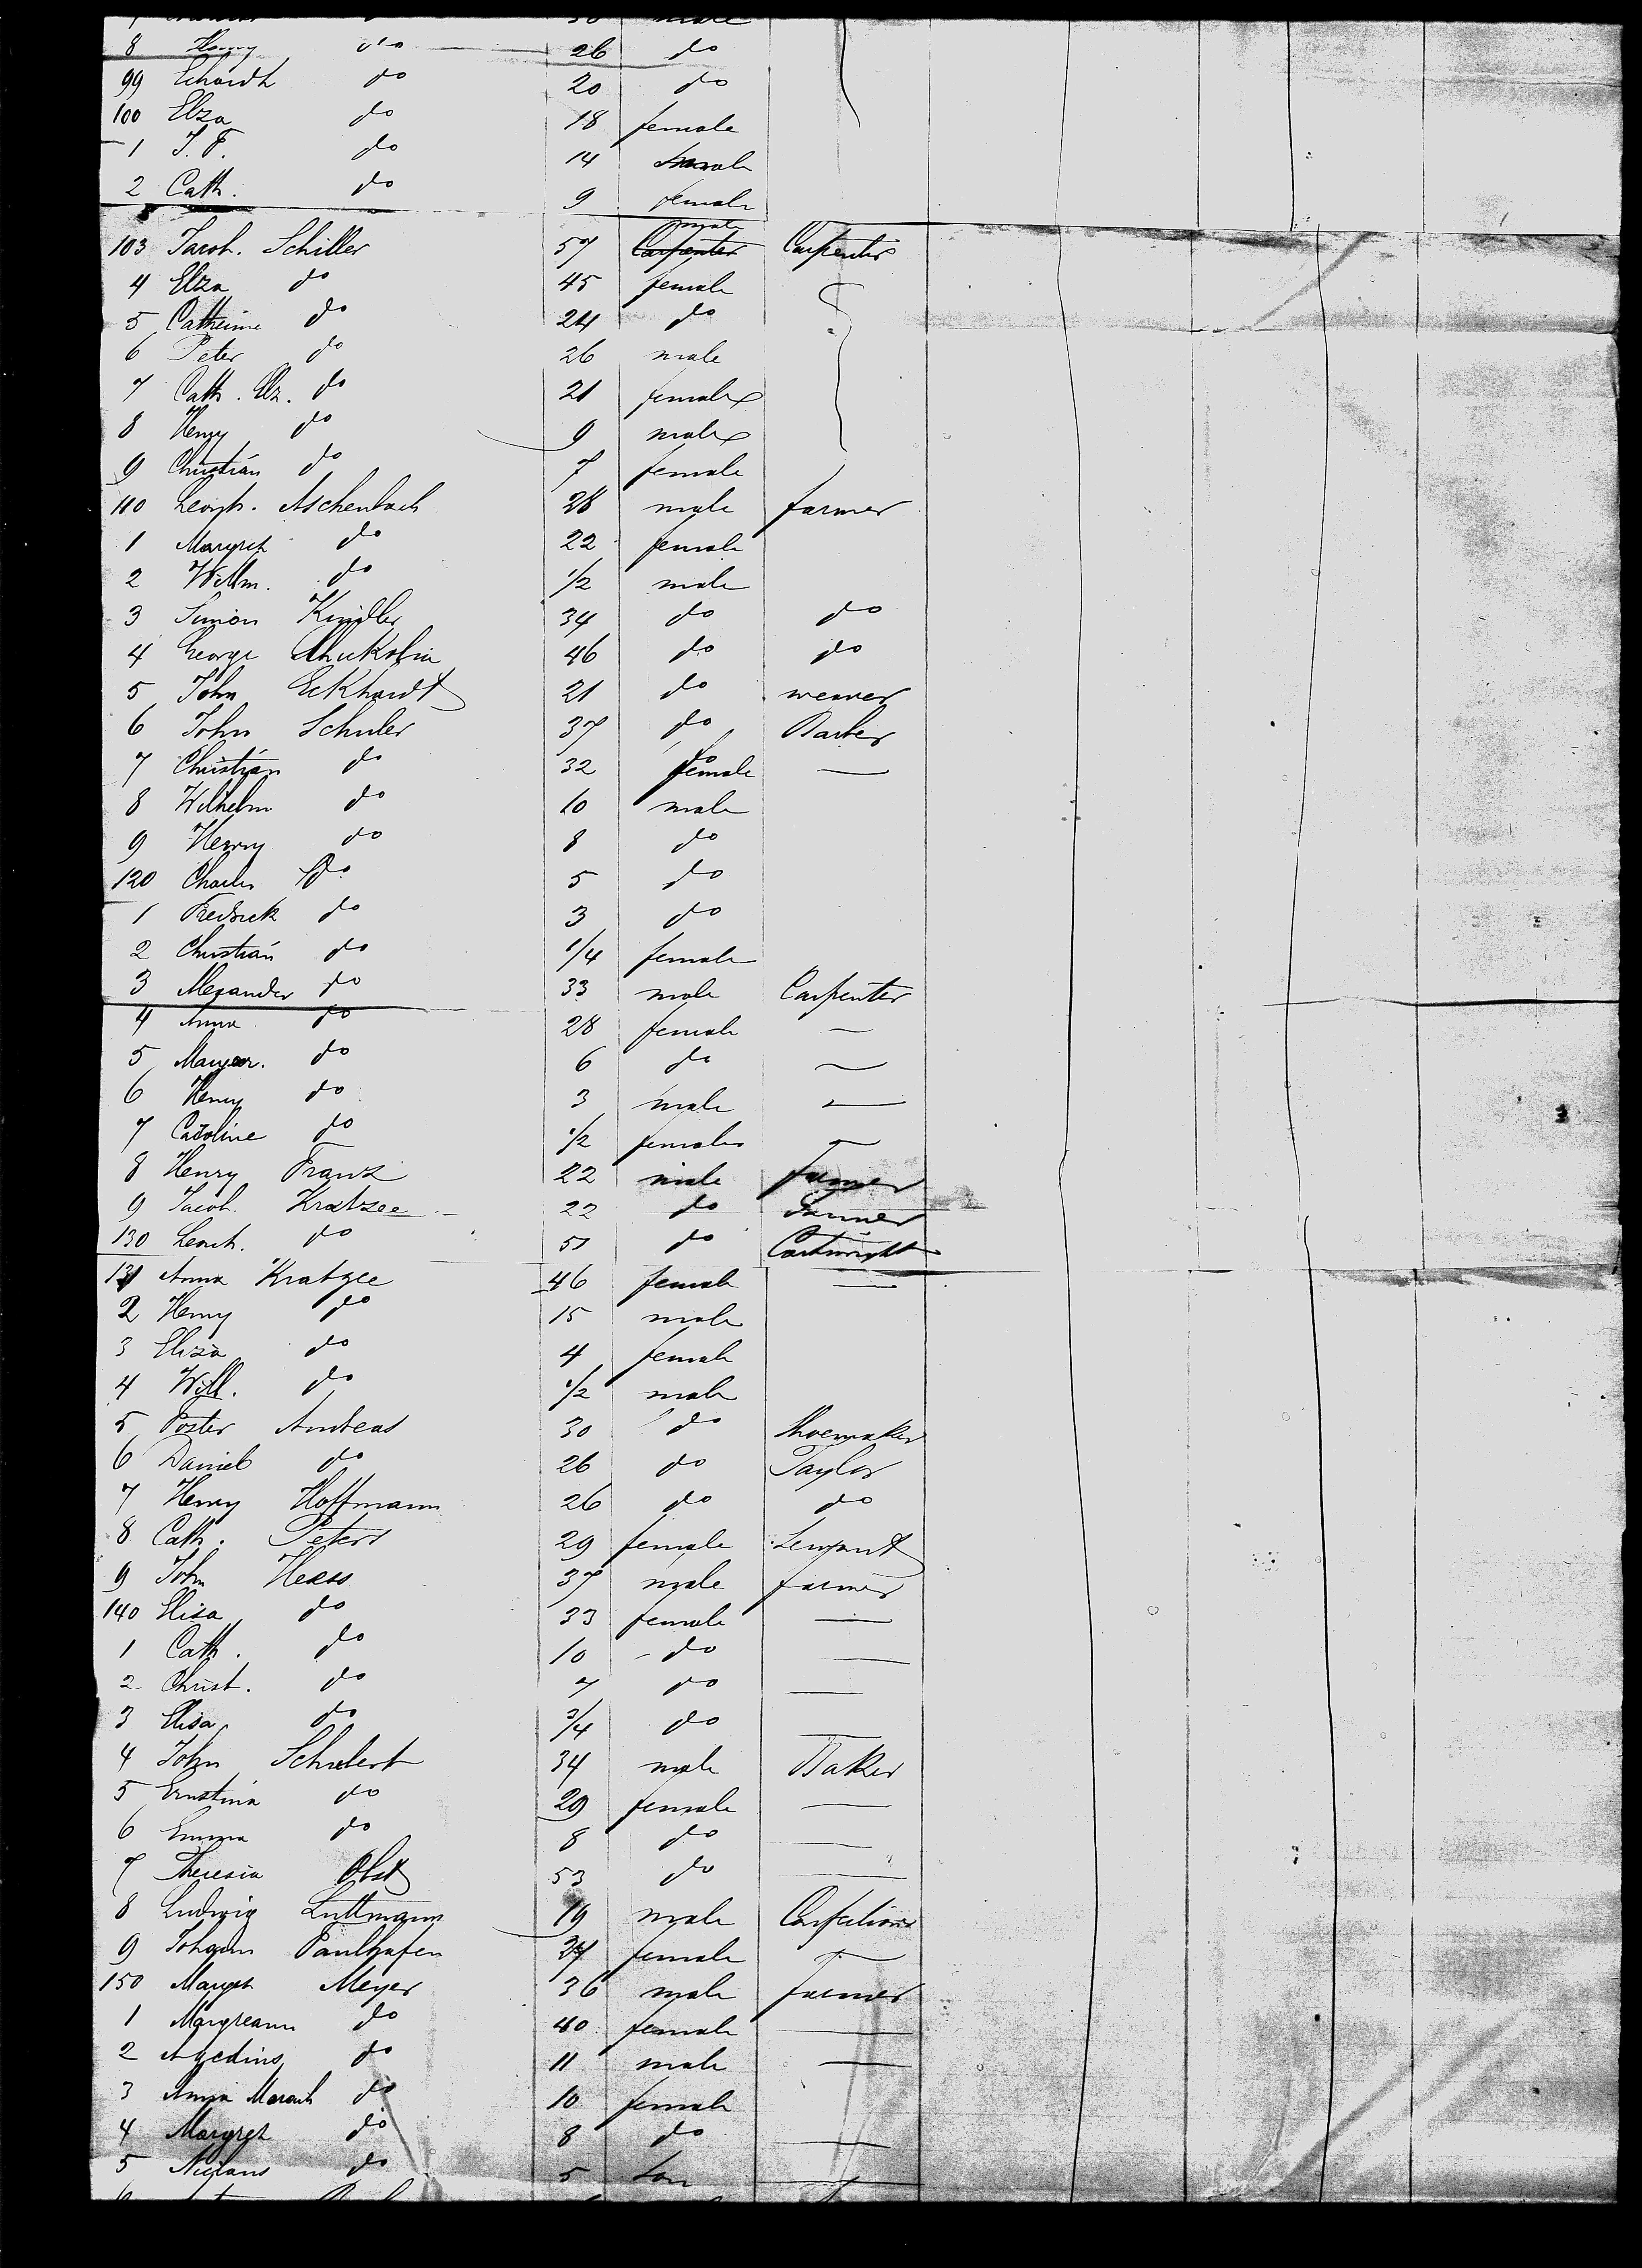 8 Henry do 26 do
99 Echardt do 20 do
100 Elza do 18 female
1 J. F. do 14
2 Cath. do 9 female
103 Jacob. Schiller 57 Carpenter male Carpenter
4 Elza do 45 female
5 Catheine do 24 do
6 Peter do 26 male
7 Cath. Elz. do 21 female
8 Henry do 9 male
9 Christian do 7 female
110 Aschenbach 28 male farmer
1 Margret do 22 female
2 Willm. do 1/2 male
3 Simon Kindler 34 do do
4 George 46 do do
5 John Eckhardt 21 do weaver
6 John Schuler 37 do
7 Christian do 32 female —
8 Wilhelm do 10 male
9 Henry do 8 do
120 Charles do 5 do
1 Fredrick do 3 do
2 Christian do 1/4 female
3 Alexander do 33 male Carpenter
4 Anna do 28 female —
5 Do 6 do —
6 Henry do 3 male —
7 Caroline do 1/2 female —
8 Henry Franz 22 male farmer
9 Jacob. Kratzee 22 do Farmer
130 do 51 do Cartwright
131 Anna Kratzee 46 female —
2 Henry do 15 male
3 Eliza do 4 female
4 Will. do 1/2 male
5 Poster Andreas 30 do Shoemaker
6 Daniel do 26 do Taylor
7 Henry Hoffmann 26 do do
8 Cath. Peters 29 female Servant
9 John Hess 37 male farmer
140 Elisa do 33 female —
1 Cath. do 10 do —
2 Christ. do 7 do —
3 Elisa do 3/4 do —
4 John Schubert 34 male Baker
5 Ernstina do 29 female —
6 Emma do 8 do —
7 Theresia Obst 53 do —
8 Ludwig Luttmann 19 male
9 Johann Paulhafen 27 female —
150 Margret Meyer 36 male farmer
1 Margreann do 40 female —
2 do 11 male —
3 Anna do 10 female
4 Margret do 8 do —
5 do 5 —